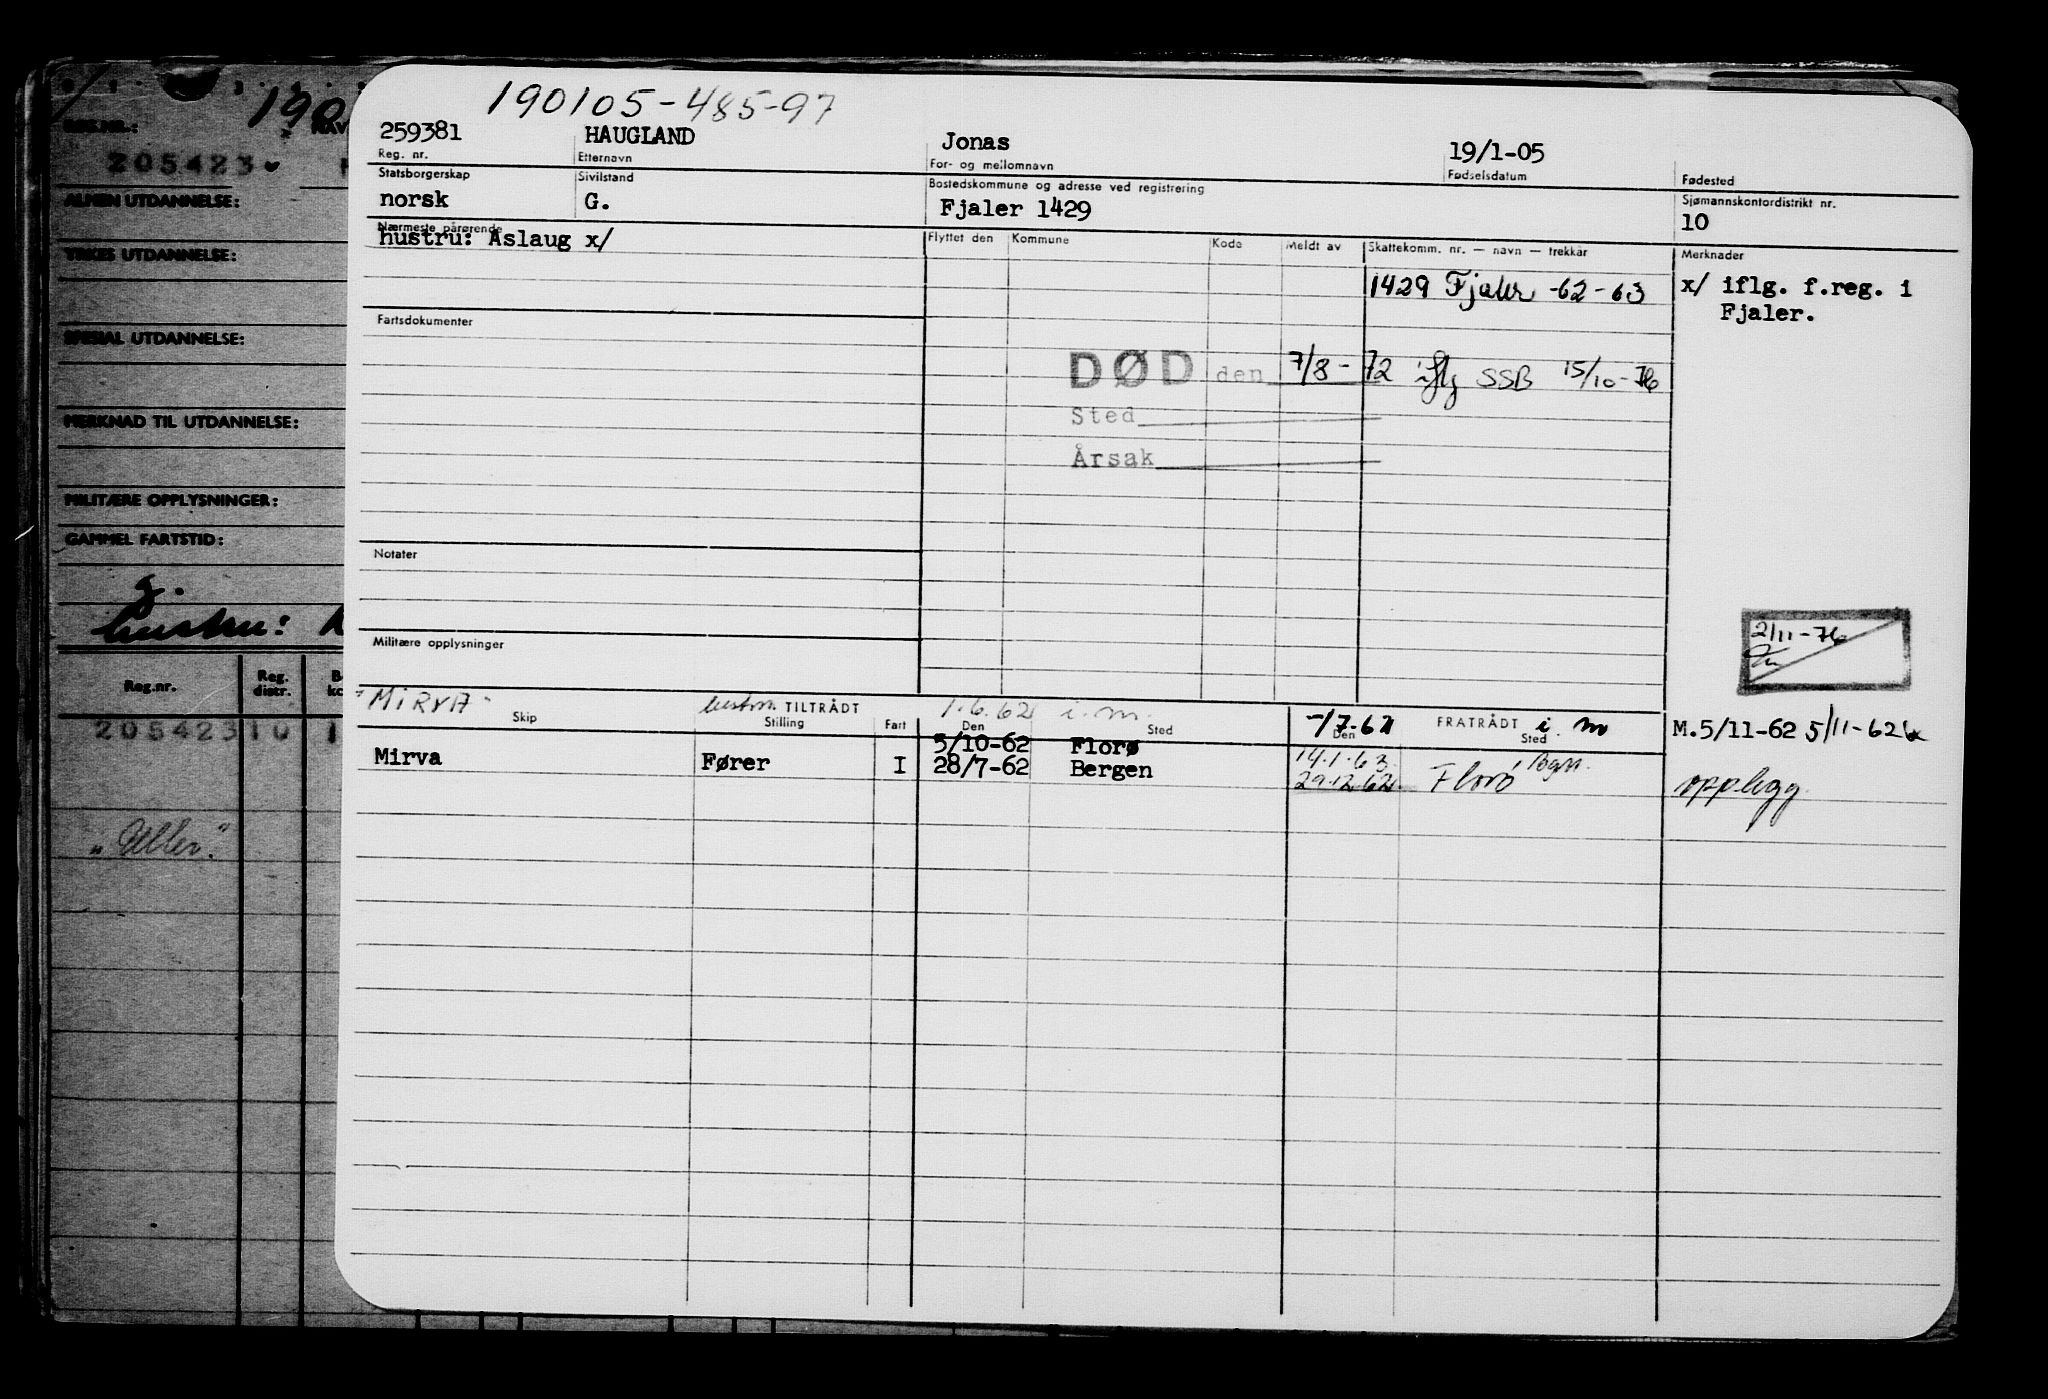 190105-485-97
259381 HAUGLAND Jonas 19/1-05
Reg. nr. Etternavn For- og mellomnavn Fødselsdatum Fødested
Statsborgerskap Sivilstand Bostedskommune og adresse ved registrering Sjømannskontordistrikt nr.
norsk G. Fjaler 1429 10
Nærmeste pårørende Flyttet den Kommune Kode Meldt av Skattekomm. nr. — navn — trekkår Merknader
hustru: Aslaug x/
1429 Fjaler -62-63 x/ iflg. f.reg. i
Fjaler.
Fartsdokumenter
DØD den 7/8-72 iflg SSB 15/10-76
Sted
Årsak
Notater
Militære opplysninger
2/11-76
"MIRVA" bestm. TILTRÅDT 1.6.62 i.m. -/7-62 FRATRÅDT i.m M.5/11-62 5/11-62
Skip Stilling Fart Den Sted Den Sted
5/10-62 Florø 14.1.63
Mirva Fører I 28/7-62 Bergen 29.12.62 Florø opplegg
190
REG.NR.: NAV
205423 H
ALMEN UTDANNELSE:
YRKES UTDANNELSE:
SPESIAL UTDANNELSE:
MERKNAD TIL UTDANNELSE:
MILITÆRE OPPLYSNINGER:
GAMMEL FARTSTID:
g.
hustru: A
Reg.nr. Reg. distr. B ko
205423 10 1
"Uller."